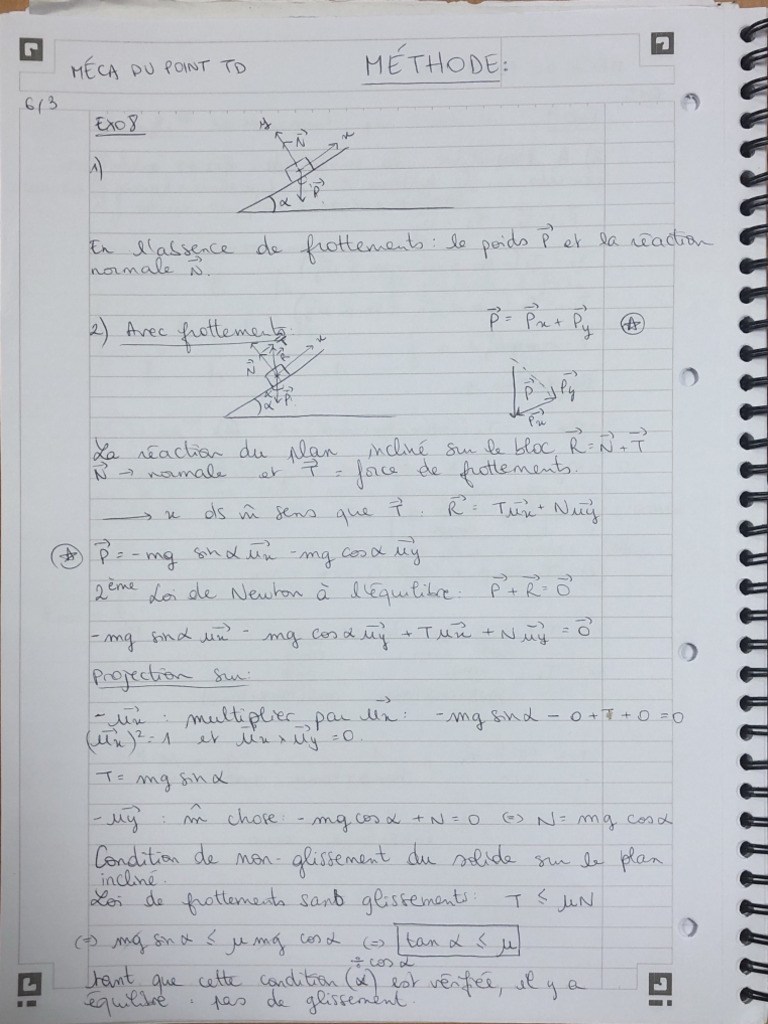 MÉCA DU POINT TD MÉTHODE:
6/3
Exo 8
1)
y N⃗ x
α P⃗
En l'absence de frottements: le poids P⃗ et la réaction
normale N⃗.
2) Avec frottements: P⃗ = P⃗x + P⃗y ☆
N⃗ R⃗ x
α P⃗
P⃗ P⃗y
P⃗x
La réaction du plan incliné sur le bloc R⃗ = N⃗ + T⃗
N⃗ → normale et T⃗ = force de frottements.
⟶ x ds m̂ sens que T⃗. R⃗ = Tu⃗x + Nu⃗y
☆ P⃗ = -mg sinα u⃗x - mg cosα u⃗y
2ème Loi de Newton à l'équilibre: P⃗ + R⃗ = 0⃗
-mg sinα u⃗x - mg cosα u⃗y + Tu⃗x + Nu⃗y = 0⃗
Projection sur:
- u⃗x : multiplier par u⃗x: -mg sinα - 0 + T + 0 = 0
(u⃗x)² = 1 et u⃗x × u⃗y = 0.
T = mg sinα
- u⃗y : m̂ chose: -mg cosα + N = 0 ⇔ N = mg cosα
Condition de non-glissement du solide sur le plan
incliné.
Loi de frottements sans glissements: T ≤ μN
⇔ mg sinα ≤ μ mg cosα ⇔ tan α ≤ μ
÷ cosα
tant que cette condition (α) est vérifiée, il y a
équilibre : pas de glissement.